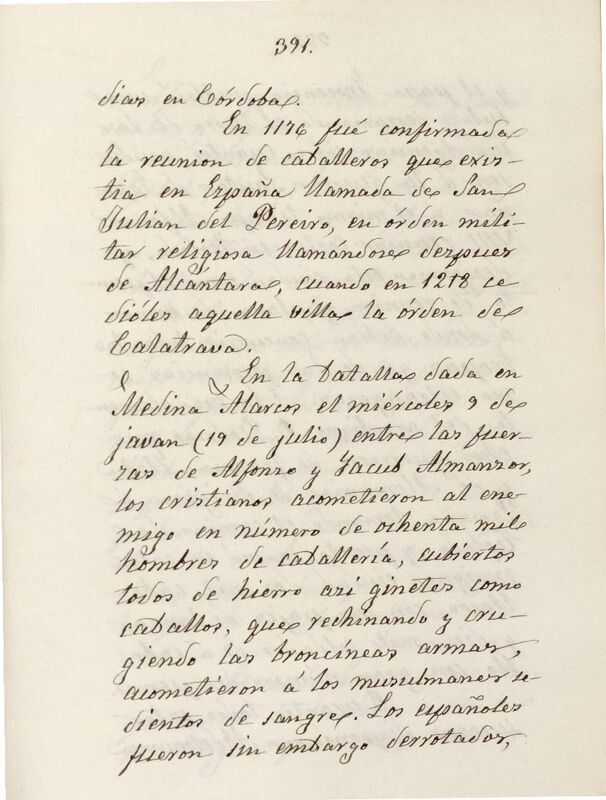 391.
dias en Córdoba.
En 1176 fué confirmada
la reunion de caballeros que exis-
tia en España llamada de San
Julian del Pereiro, en órden mili-
tar religiosa llamándose despues
de Alcántara, cuando en 1218 ce
dióles aquella villa la órden de
Calatrava.
En la batalla dada en
Medina Alarcos el miércoles 9 de
javan (19 de julio) entre las fuer-
zas de Alfonso y Jacub Almanzor,
los cristianos acometieron al ene-
migo en número de ochenta mil
hombres de caballería, cubiertos
todos de hierro asi ginetes como
caballos, que rechinando y cru-
giendo las broncíneas armas,
acometieron á los musulmanes se-
dientos de sangre. Los españoles
fueron sin embargo derrotados,